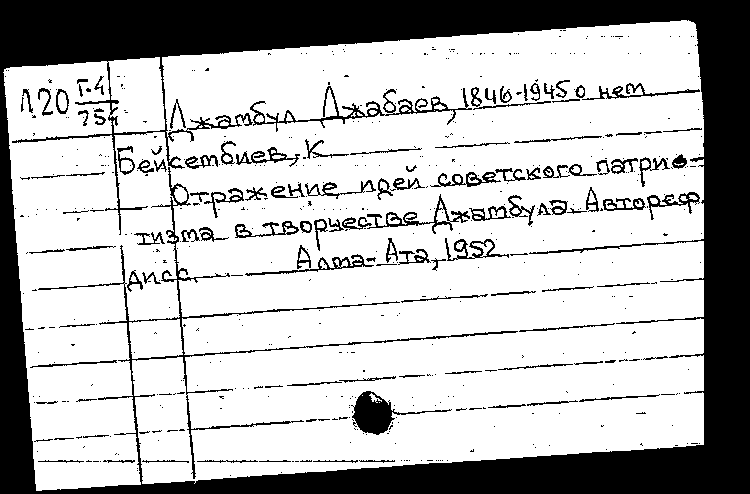 Л20 Г-4
254
Джамбул Джабаев, 1846-1945 о нем
Бейсембиев, К
Отражение идей советского патрио-
тизма в творчестве Джамбула. Автореф.
дисс. Алма-Ата, 1952